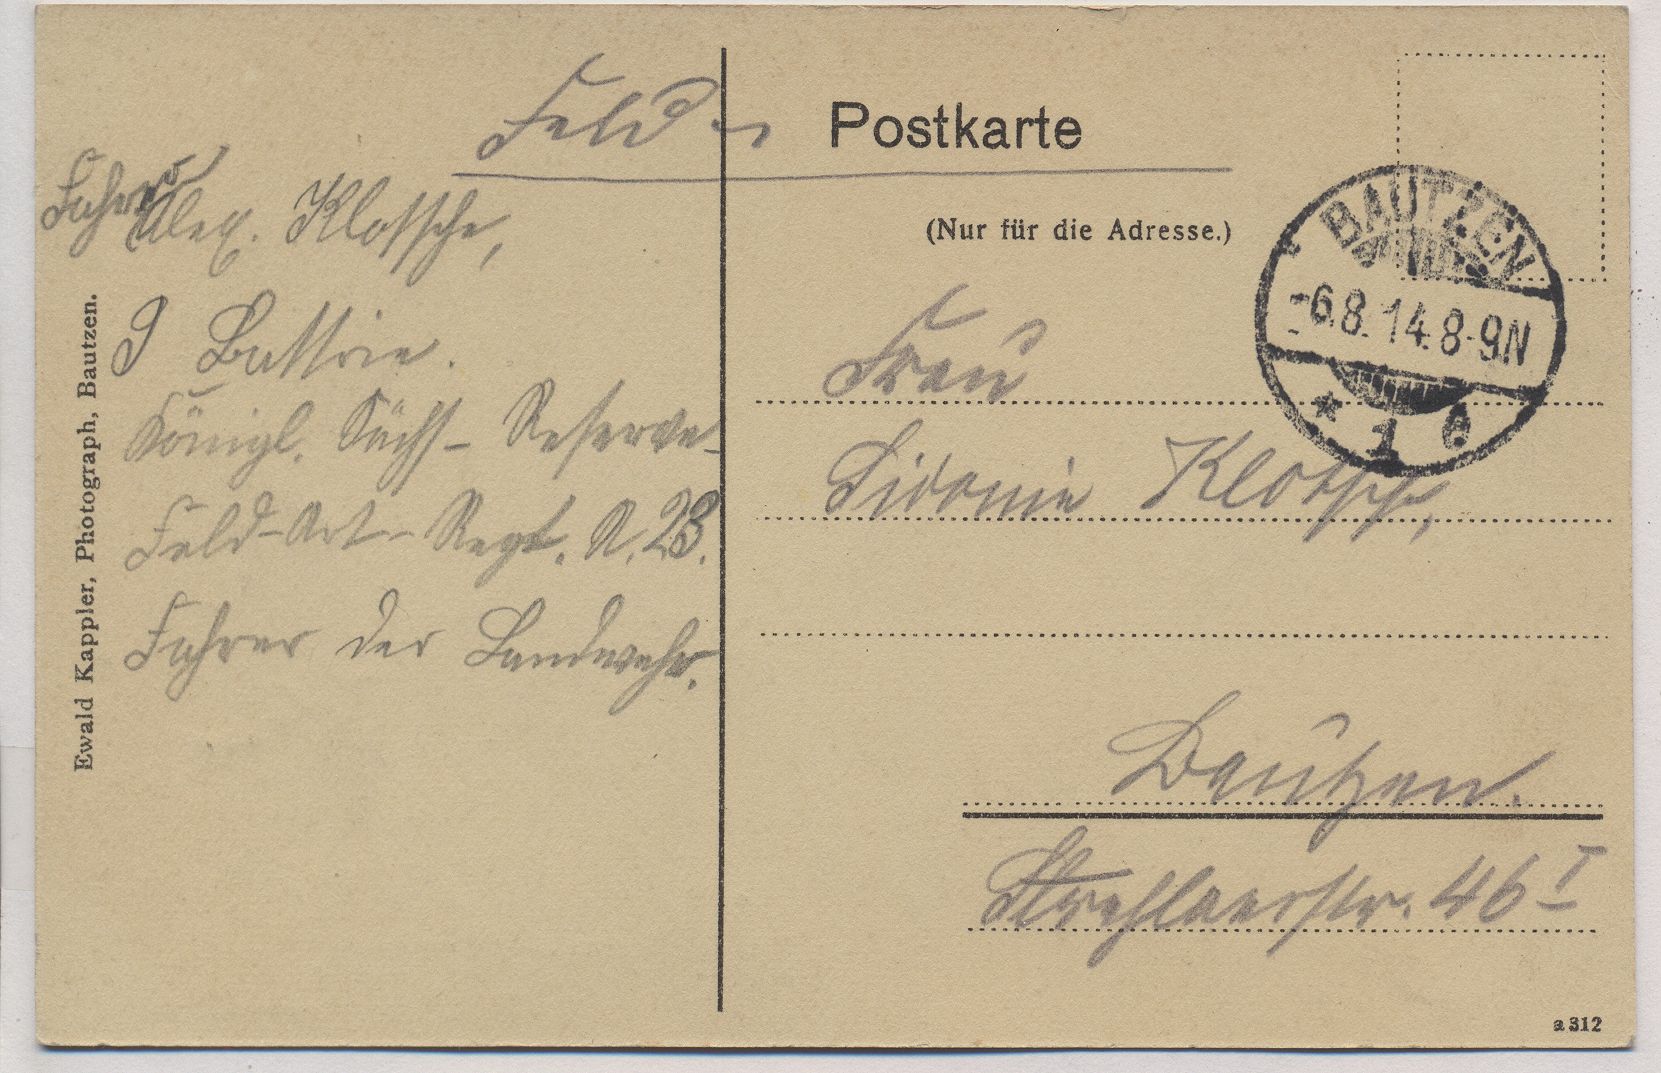 Feld-
Postkarte
(Nur für die Adresse.)
Fahrer
Alex. Klotsche,
9 Battrie.
Königl. Sächs- Reserve-
Feld-Art-Regt. N. 23.
Fahrer der Landwehr.
Ewald Kappler, Photograph, Bautzen.
BAUTZEN
-6.8.14.8-9N
* 1
Frau
Sidonie Klotsche,
Bautzen.
Strehlaerstr. 46 I
a 312